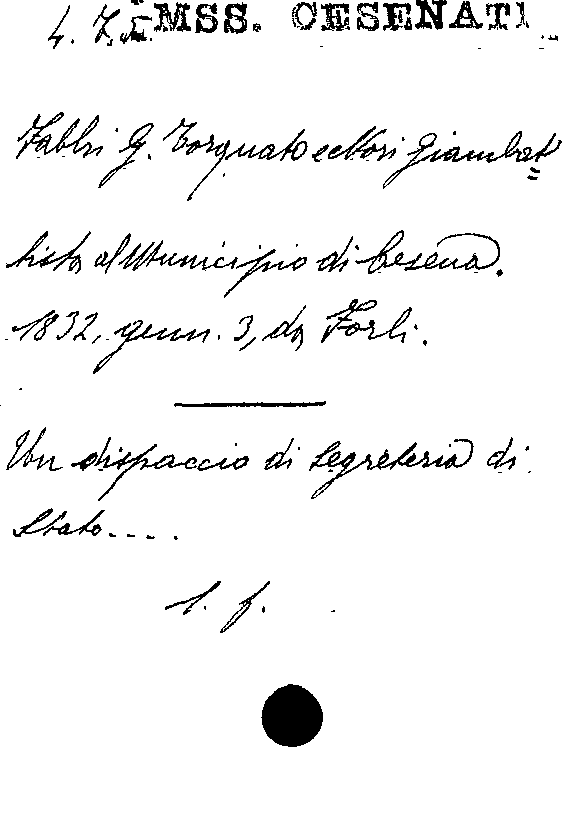 4. 7. MSS. CESENATI
Fabbri G. Torquato e Nori Giambat=
tista al Municipio di Cesena.
1832, genn. 3, da Forlì.
Un dispaccio di Segreteria di
Stato....
1. f.